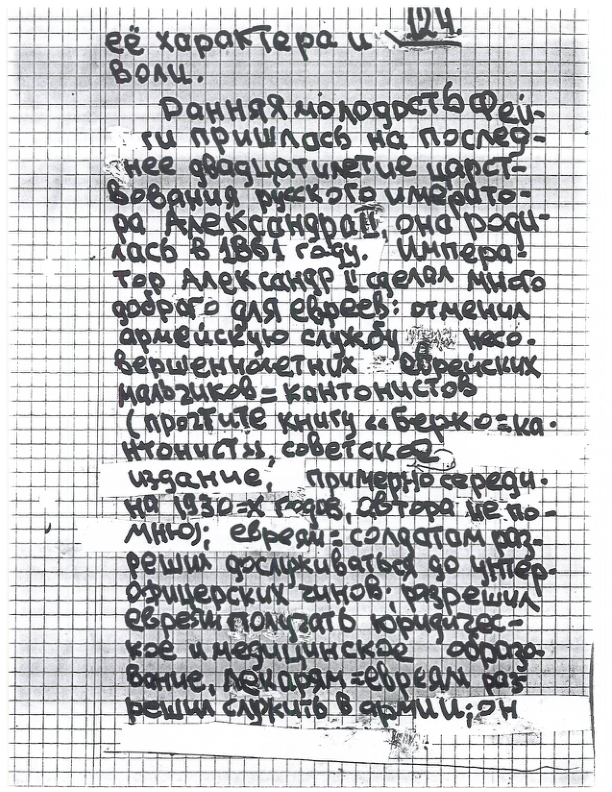 её характера и 124.
воли.
Ранняя молодость Фей-
ги пришлась на послед-
нее двадцатилетие царст-
вования русского императо-
ра Александра II, она роди-
лась в 1861 году. Импера-
тор Александр II сделал много
доброго для евреев: отменил
армейскую службу несо-
вершеннолетних еврейских
мальчиков=кантонистов
(прочтите книгу «Берко=ка-
нтонист», советское
издание, примерно середи-
на 1930=х годов, автора не по-
мню); евреям=солдатам раз-
решил дослуживаться до унтер-
офицерских чинов; разрешил
евреям получать юридичес-
кое и медицинское образо-
вание, лекарям=евреям раз-
решил служить в армии; он